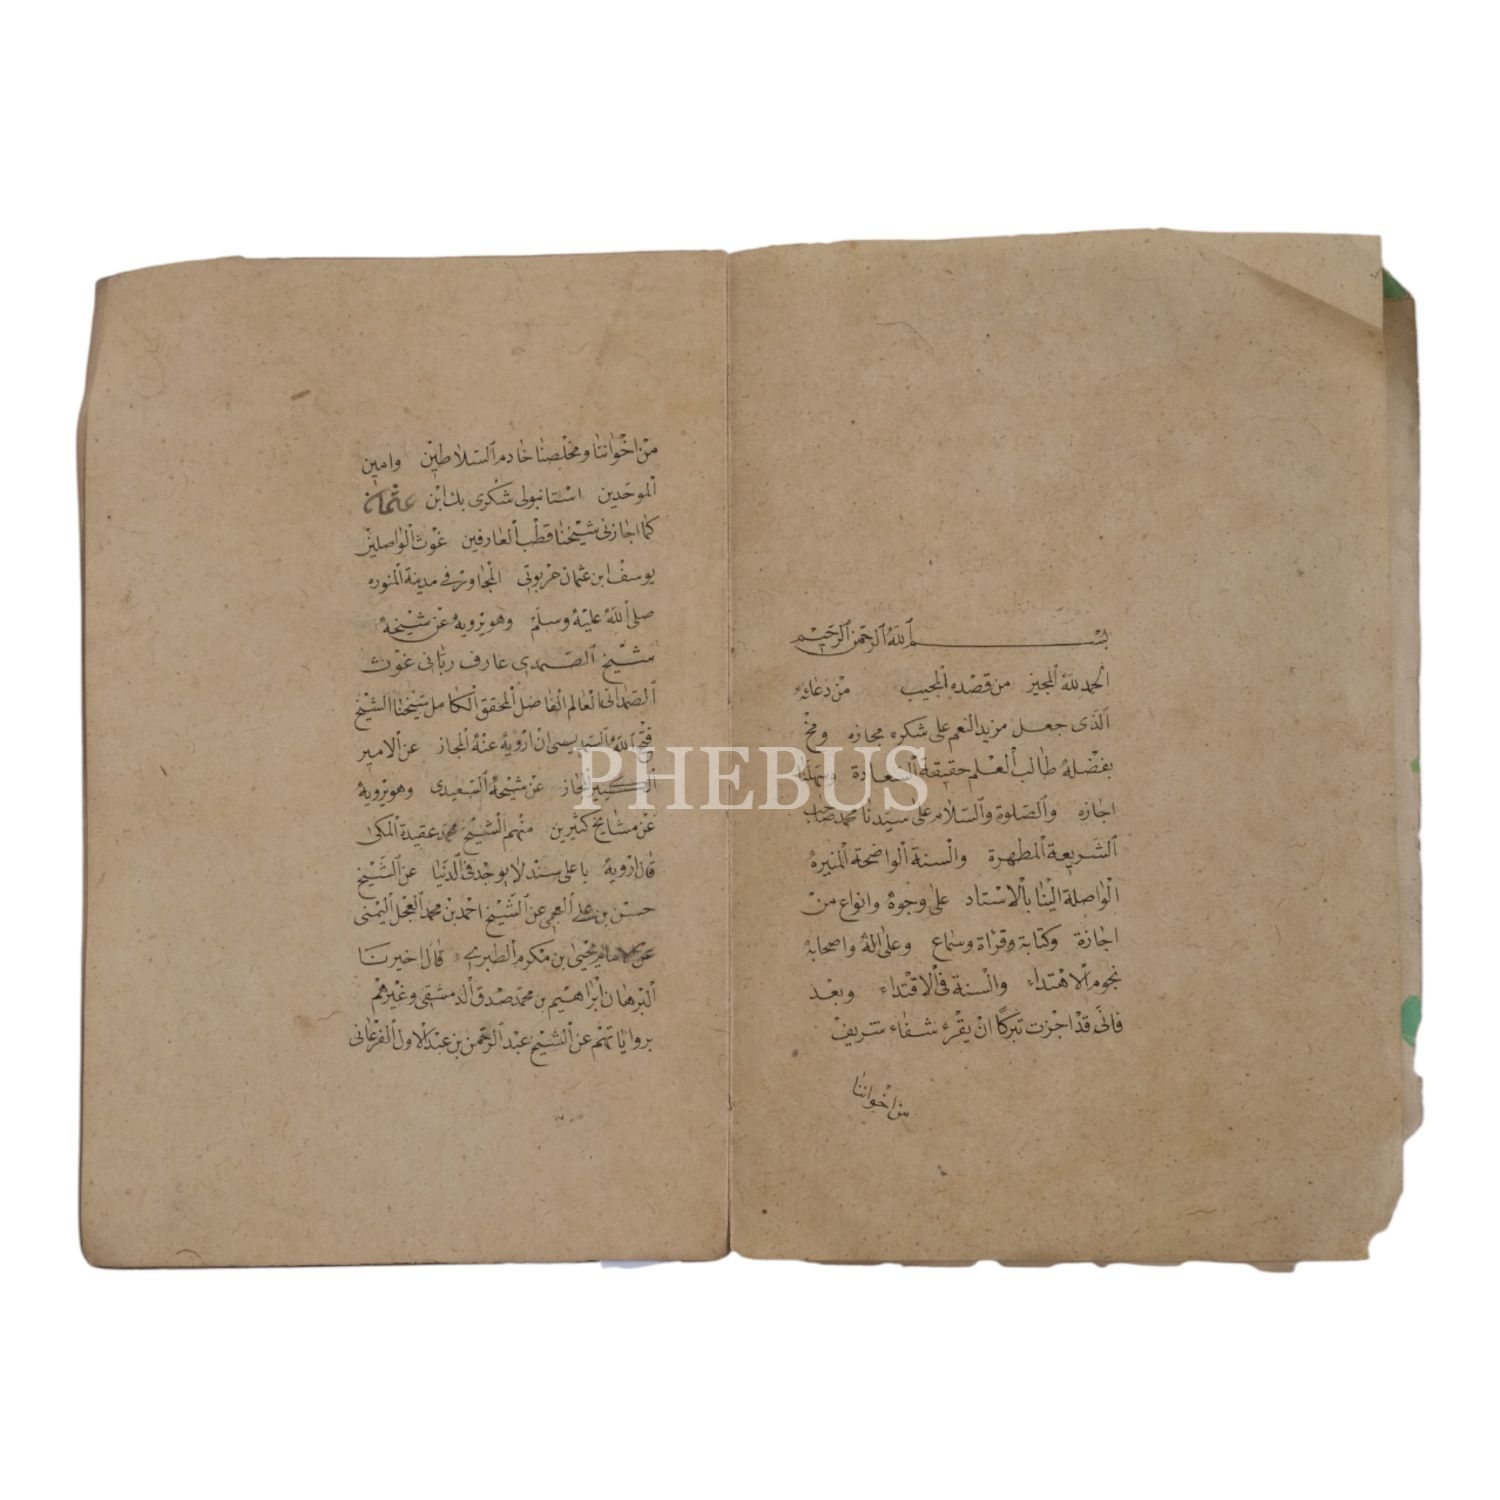 بسم الله الرحمن الرحيم
الحمد لله المجيز من قصده المجيب من دعائه
الذى جعل مزيد النعم على شكره مجازه ومنح
بفضله طالب العلم حقيقة السعادة وسهلنا
اجازه والصلوة والسلام على سيدنا محمد صاحب
الشريعة المطهرة والسنة الواضحة المنيرة
الواصلة الينا بالاستاد على وجوه وانواع من
اجازة وكتابة وقراة وسماع وعلى اله واصحابه
نجوم الاهتداء والسنة فى الاقتداء وبعد
فانى قد اجزت تبركا ان يقرء شفاء شريف
من اخواننا
من اخواننا ومخلصنا خادم السلاطين وامين
الموحدين استانبولى شكرى بك ابن عثمان
كما اجازنى شيخنا قطب العارفين غوث الواصلين
يوسف ابن عثمان خربوتى المجاور فى مدينة المنوره
صلى الله عليه وسلم وهو يرويه عن شيخه
شيخ الصمدى عارف ربانى غوث
الصمدانى العالم الفاضل المحقق الكامل شيخنا الشيخ
فتح الله السديسى ان ارويه عنه المجاز عن الامير
الكبير المجاز عن شيخه السعيدى وهو يرويه
عن مشايخ كثيرين منهم الشيخ محمد عقيدة المكى
قال ارويه باعلى سند لا يوجد فى الدنيا عن الشيخ
حسن بن على العجمى عن الشيخ احمد بن محمد العجل اليمنى
عن الامام يحيى بن مكرم الطبرى قال اخبرنا
البرهان ابراهيم بن محمد صدق الدمشقى وغيرهم
بروايا تهم عن الشيخ عبد الرحمن بن عبد الاول الفرغانى
PHEBUS